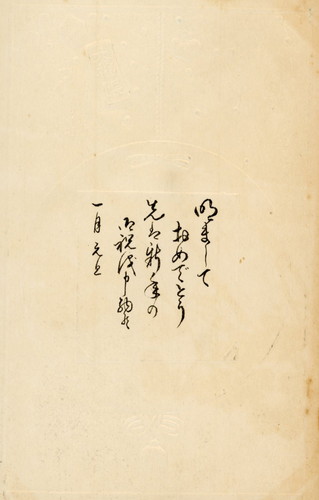 明まして
おめでとう
先は新年の
御祝儀申納候
一月元旦